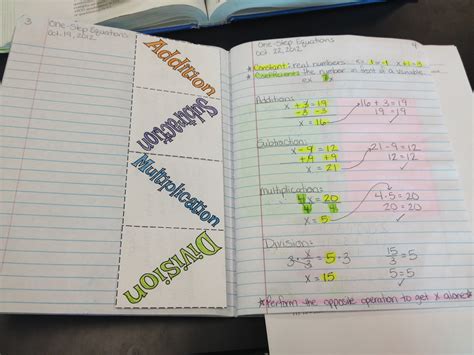 3
One-Step Equations
Oct. 19, 2012
Addition
Subtraction
Multiplication
Division
One-Step Equations
Oct. 22, 2012
4
*Constant: real numbers
*Coefficient: the number in front of a variable
ex
Addition:
x + 3 = 19
16 + 3 = 19
-3 -3
19 = 19
x = 16
✓
Subtraction:
x - 9 = 12
21 - 9 = 12
+9 +9
12 = 12
x = 21
✓
Multiplication:
4x = 20
4·5 = 20
4 4
20 = 20
x = 5
✓
Division:
3· x/3 = 5·3
15/3 = 5
x = 15
5 = 5
✓
*Perform the opposite operation to get x alone*